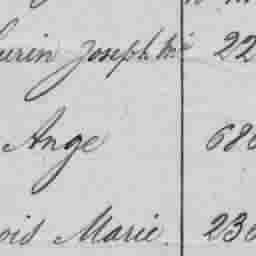 urin Joseph Mie 22
Ange 686
ois Marie. 236